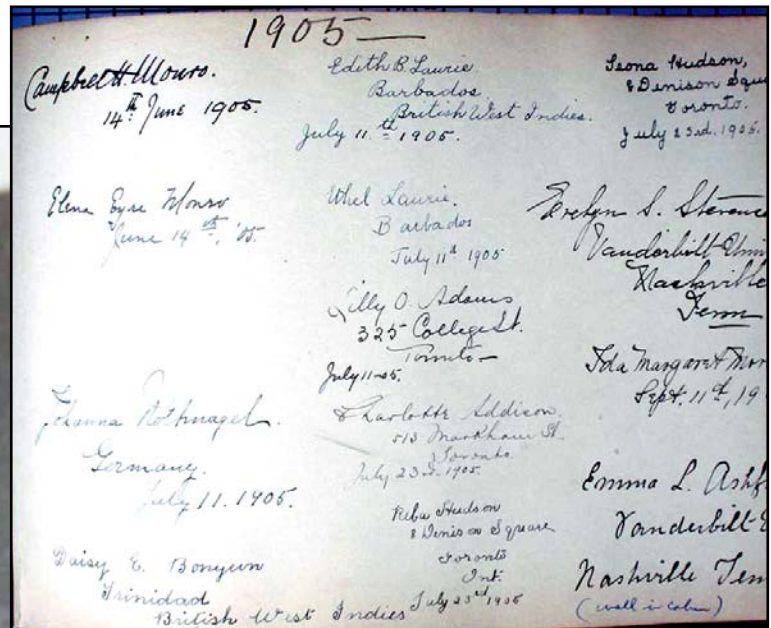 1905 —
Campbell H. Monro.
14th June 1905.
Elena Eyre Monro
June 14th, '05.
Johanna Rothnagel.
Germany.
July 11. 1905.
Daisy E. Bonyun
Trinidad
British West Indies
Edith B. Laurie
Barbados.
British West Indies.
July 11th 1905.
Ethel Laurie.
Barbados
July 11th 1905
Lilly O. Adams
325 College St.
Toronto —
July 11-05.
Charlotte Addison.
513 Markham St.
Toronto.
July 23rd. 1905.
Reba Hudson
8 Denison Square
Toronto
Ont.
July 23rd 1905
Leona Hudson,
8 Denison Squ
Toronto.
July 23rd. 1905.
Evelyn S.
Vanderbilt
Nashville
Tenn
Ida Margaret
Sept. 11th, 19
Emma L. Ashf
Vanderbilt
Nashville Ten